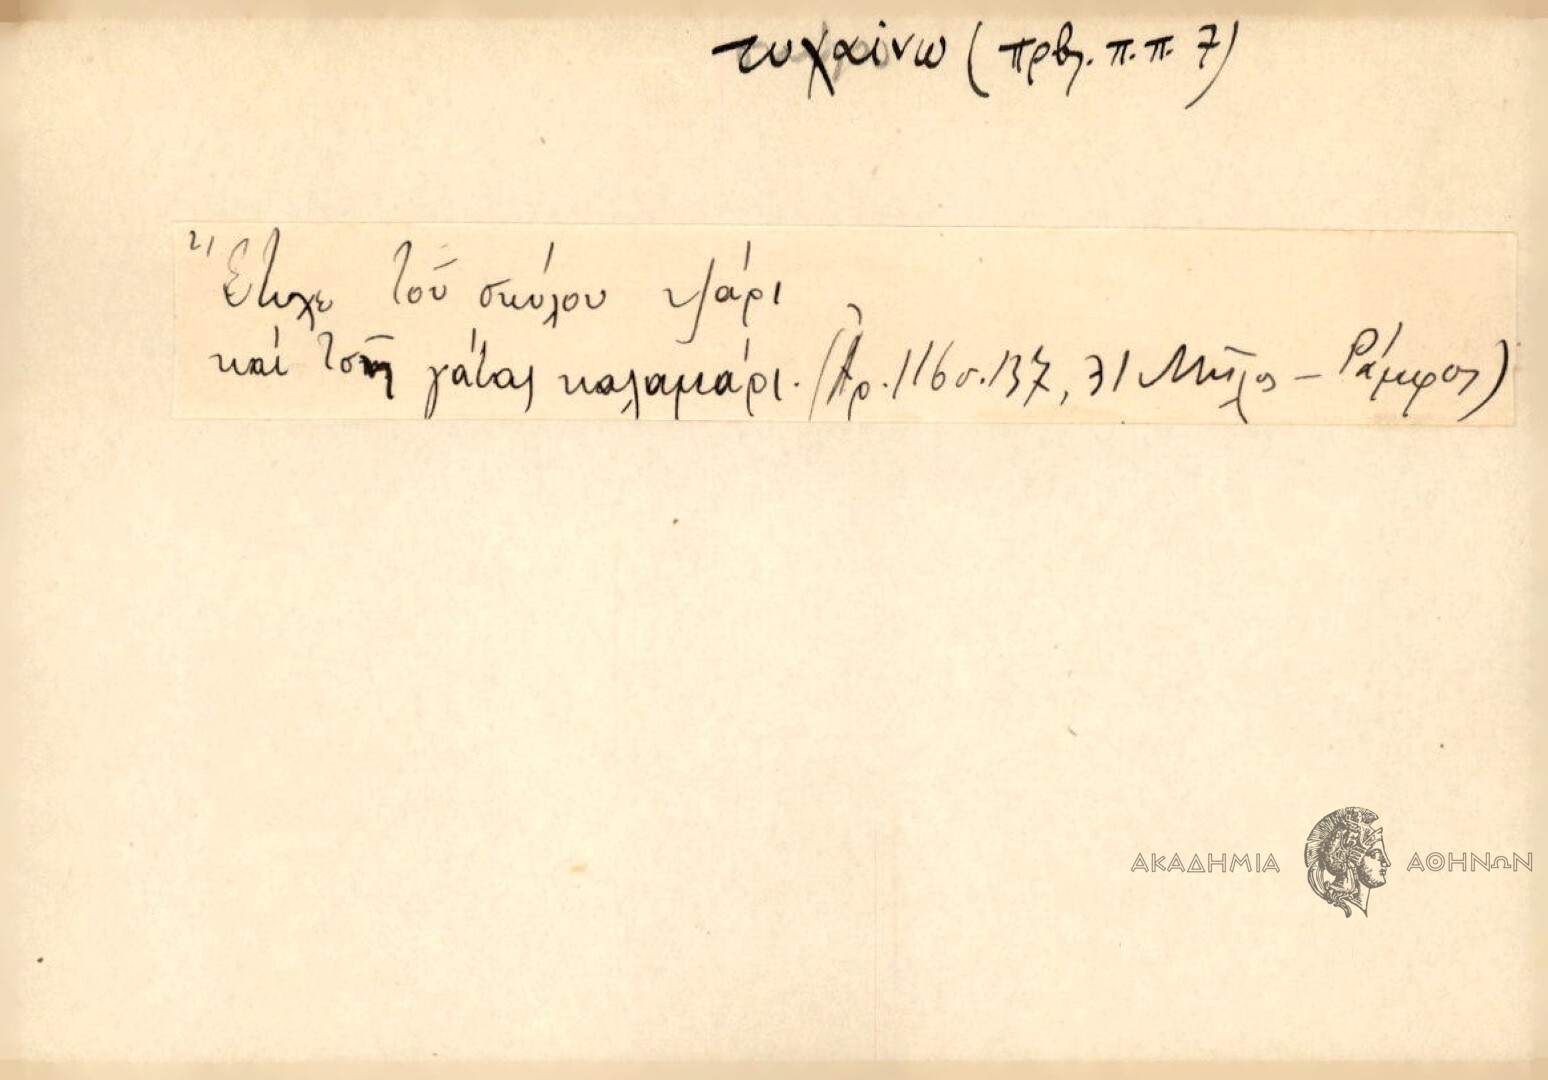 τυχαίνω (πρβ. π.π. 7)
Ἔτυχε τοῦ σκύλου ψάρι
καί τση γάτας καλαμάρι. (Ἀρ. 116 σ. 137, 31 Μῆλος – Ράμφος)
ΑΚΑΔΗΜΙΑ ΑΘΗΝΩΝ